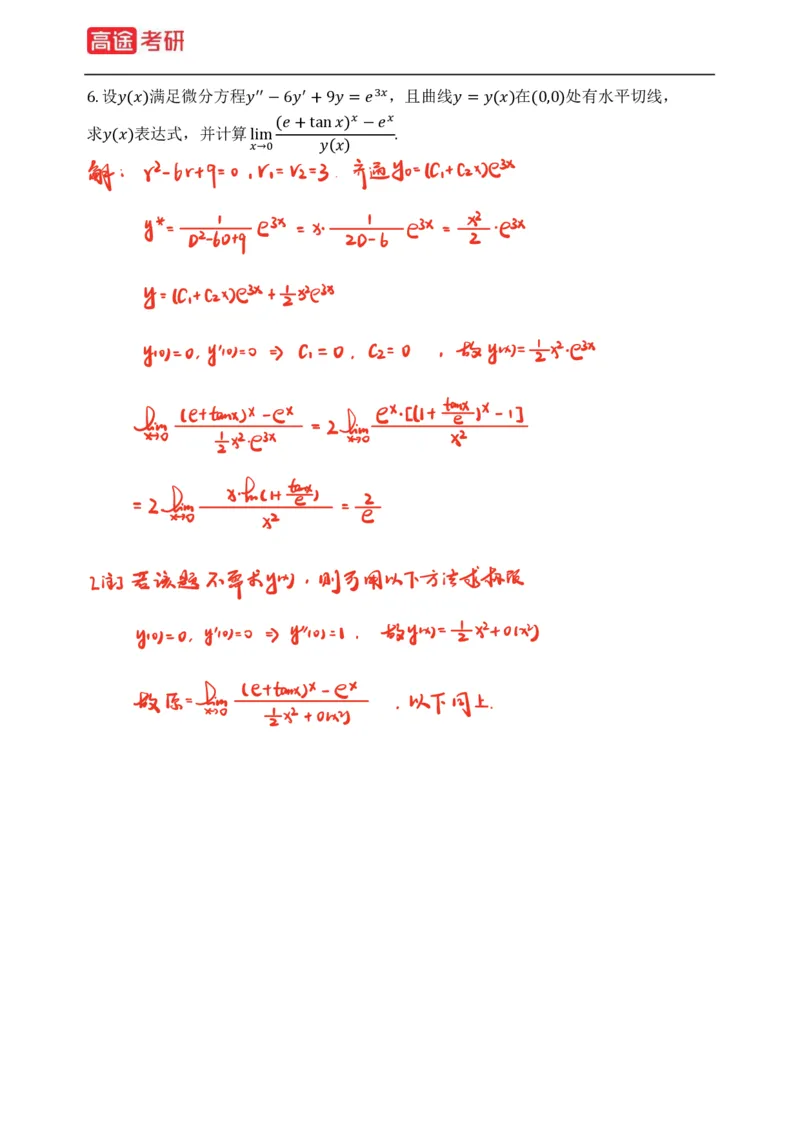 高途考研
6.设y(x)满足微分方程y′′−6y′+9y=e^{3x}，且曲线y=y(x)在(0,0)处有水平切线，
求y(x)表达式，并计算lim_{x→0} ((e+tan x)^x−e^x)/y(x).
解：r²-6r+9=0，r₁=r₂=3. 齐通y₀=(C₁+C₂x)e^{3x}
y*=1/(D²-6D+9) e^{3x}=x·1/(2D-6) e^{3x}=x²/2·e^{3x}
y=(C₁+C₂x)e^{3x}+1/2 x²e^{3x}
y(0)=0, y′(0)=0 ⇒ C₁=0, C₂=0，故y(x)=1/2 x²·e^{3x}
lim_{x→0} ((e+tanx)^x-e^x)/(1/2 x²·e^{3x})=2lim_{x→0} (e^x·[(1+tanx/e)^x-1])/x²
=2lim_{x→0} (x·ln(1+tanx/e))/x²=2/e
[注]若该题不要求y(x)，则可用以下方法求极限
y(0)=0, y′(0)=0 ⇒ y″(0)=1，故y(x)=1/2 x²+o(x²)
故原=lim_{x→0} ((e+tanx)^x-e^x)/(1/2 x²+o(x²))，以下同上.